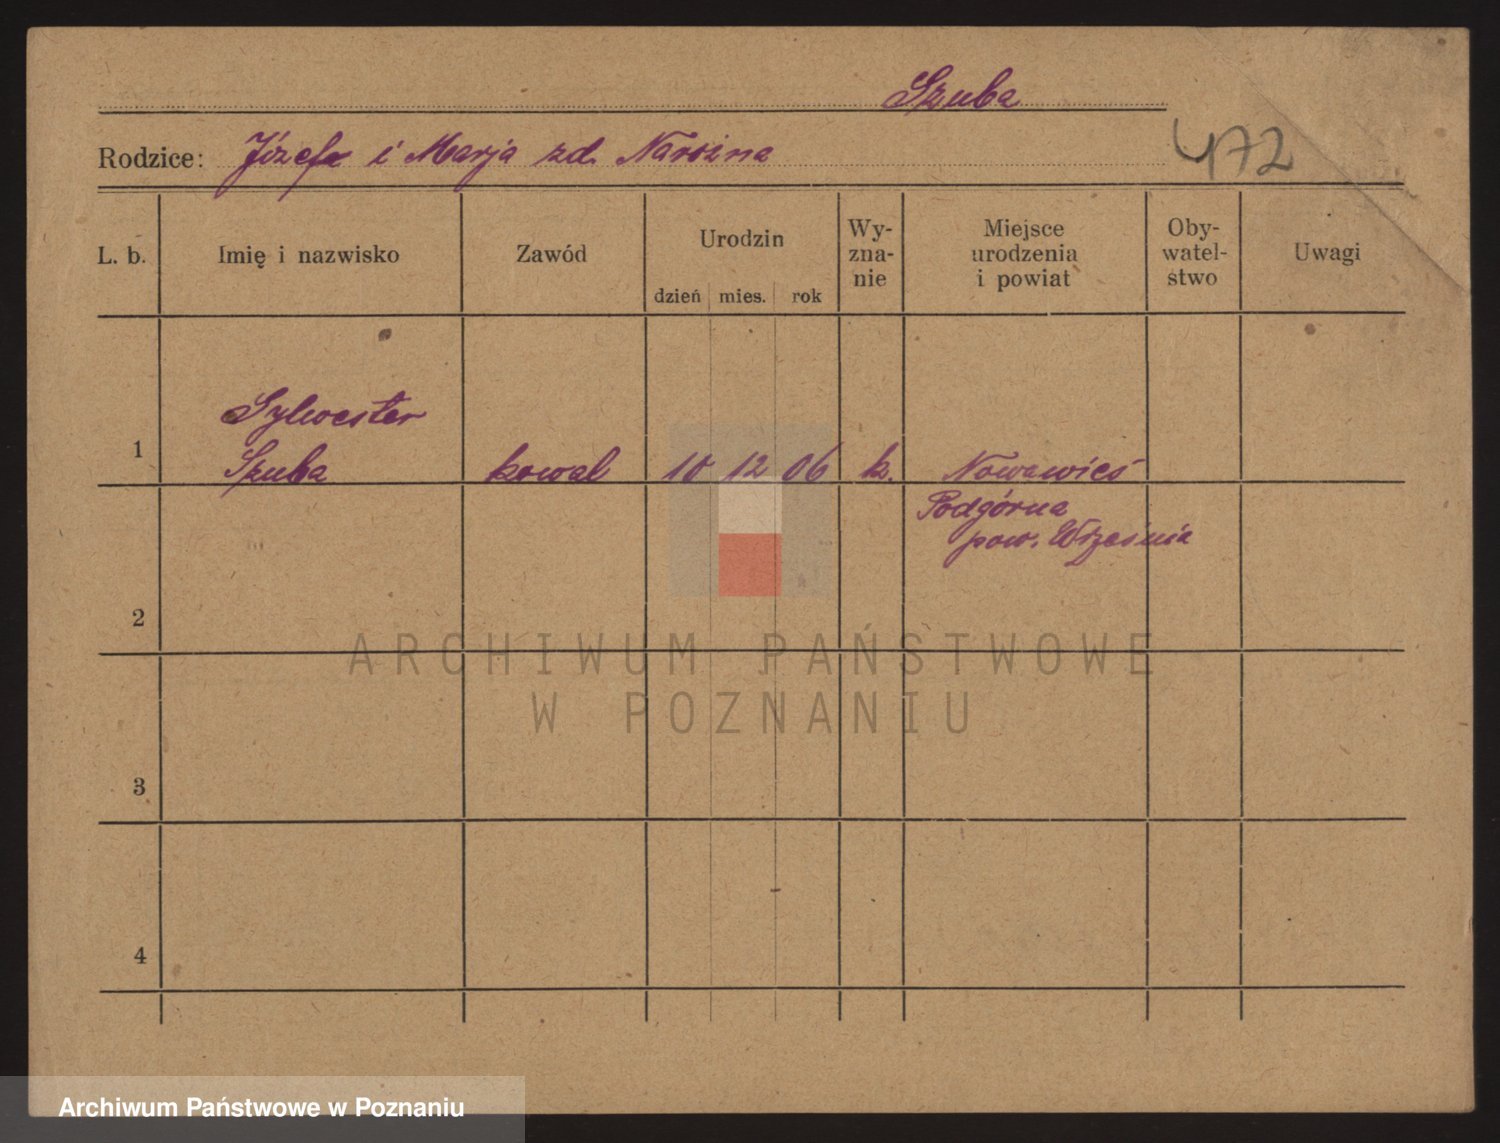 Szuba
Rodzice: Józefa i Marja zd. Naroźna
472
L. b. Imię i nazwisko Zawód Urodzin Wy-zna-nie Miejsce urodzenia i powiat Oby-watel-stwo Uwagi
dzień mies. rok
Sylwester
1 Szuba kowal 10 12 06 k. Nowawieś
Podgórna
pow. Września
2
3
4
ARCHIWUM PAŃSTWOWE
W POZNANIU
Archiwum Państwowe w Poznaniu